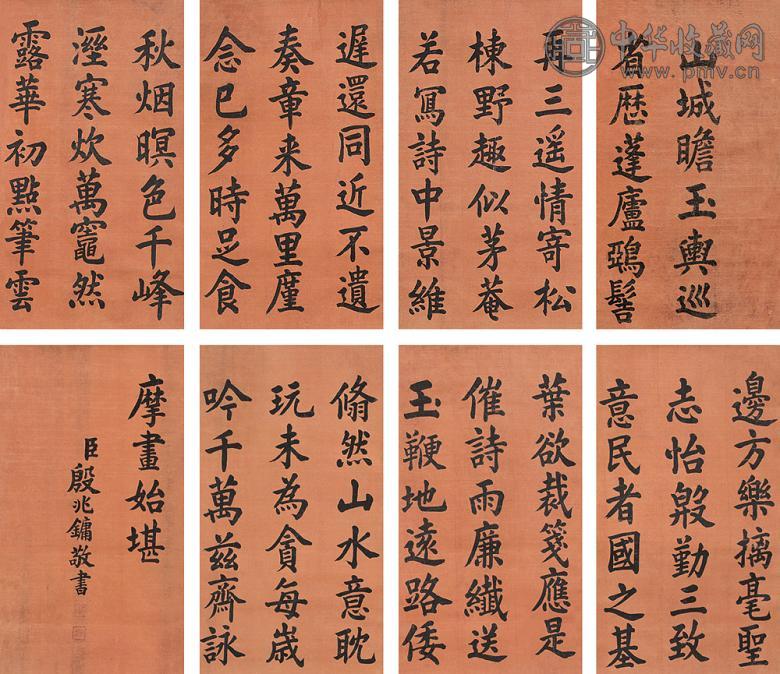 中华收藏网
www.pmv.cn
山城瞻玉輿巡
省歷蓬廬鵶髻
再三遥情寄松
棟野趣似茅菴
若寫詩中景維
遲還同近不遺
奏章来萬里廑
念已多時足食
秋烟暝色千峰
溼寒炊萬竈然
露華初點筆雲
邊方樂摛毫聖
志怡殷勤三致
意民者國之基
葉欲裁箋應是
催詩雨廉纖送
玉鞭地逺路倭
翛然山水意耽
玩未為貪每歳
吟千萬兹齊詠
摩畫始堪
臣殷兆鏞敬書